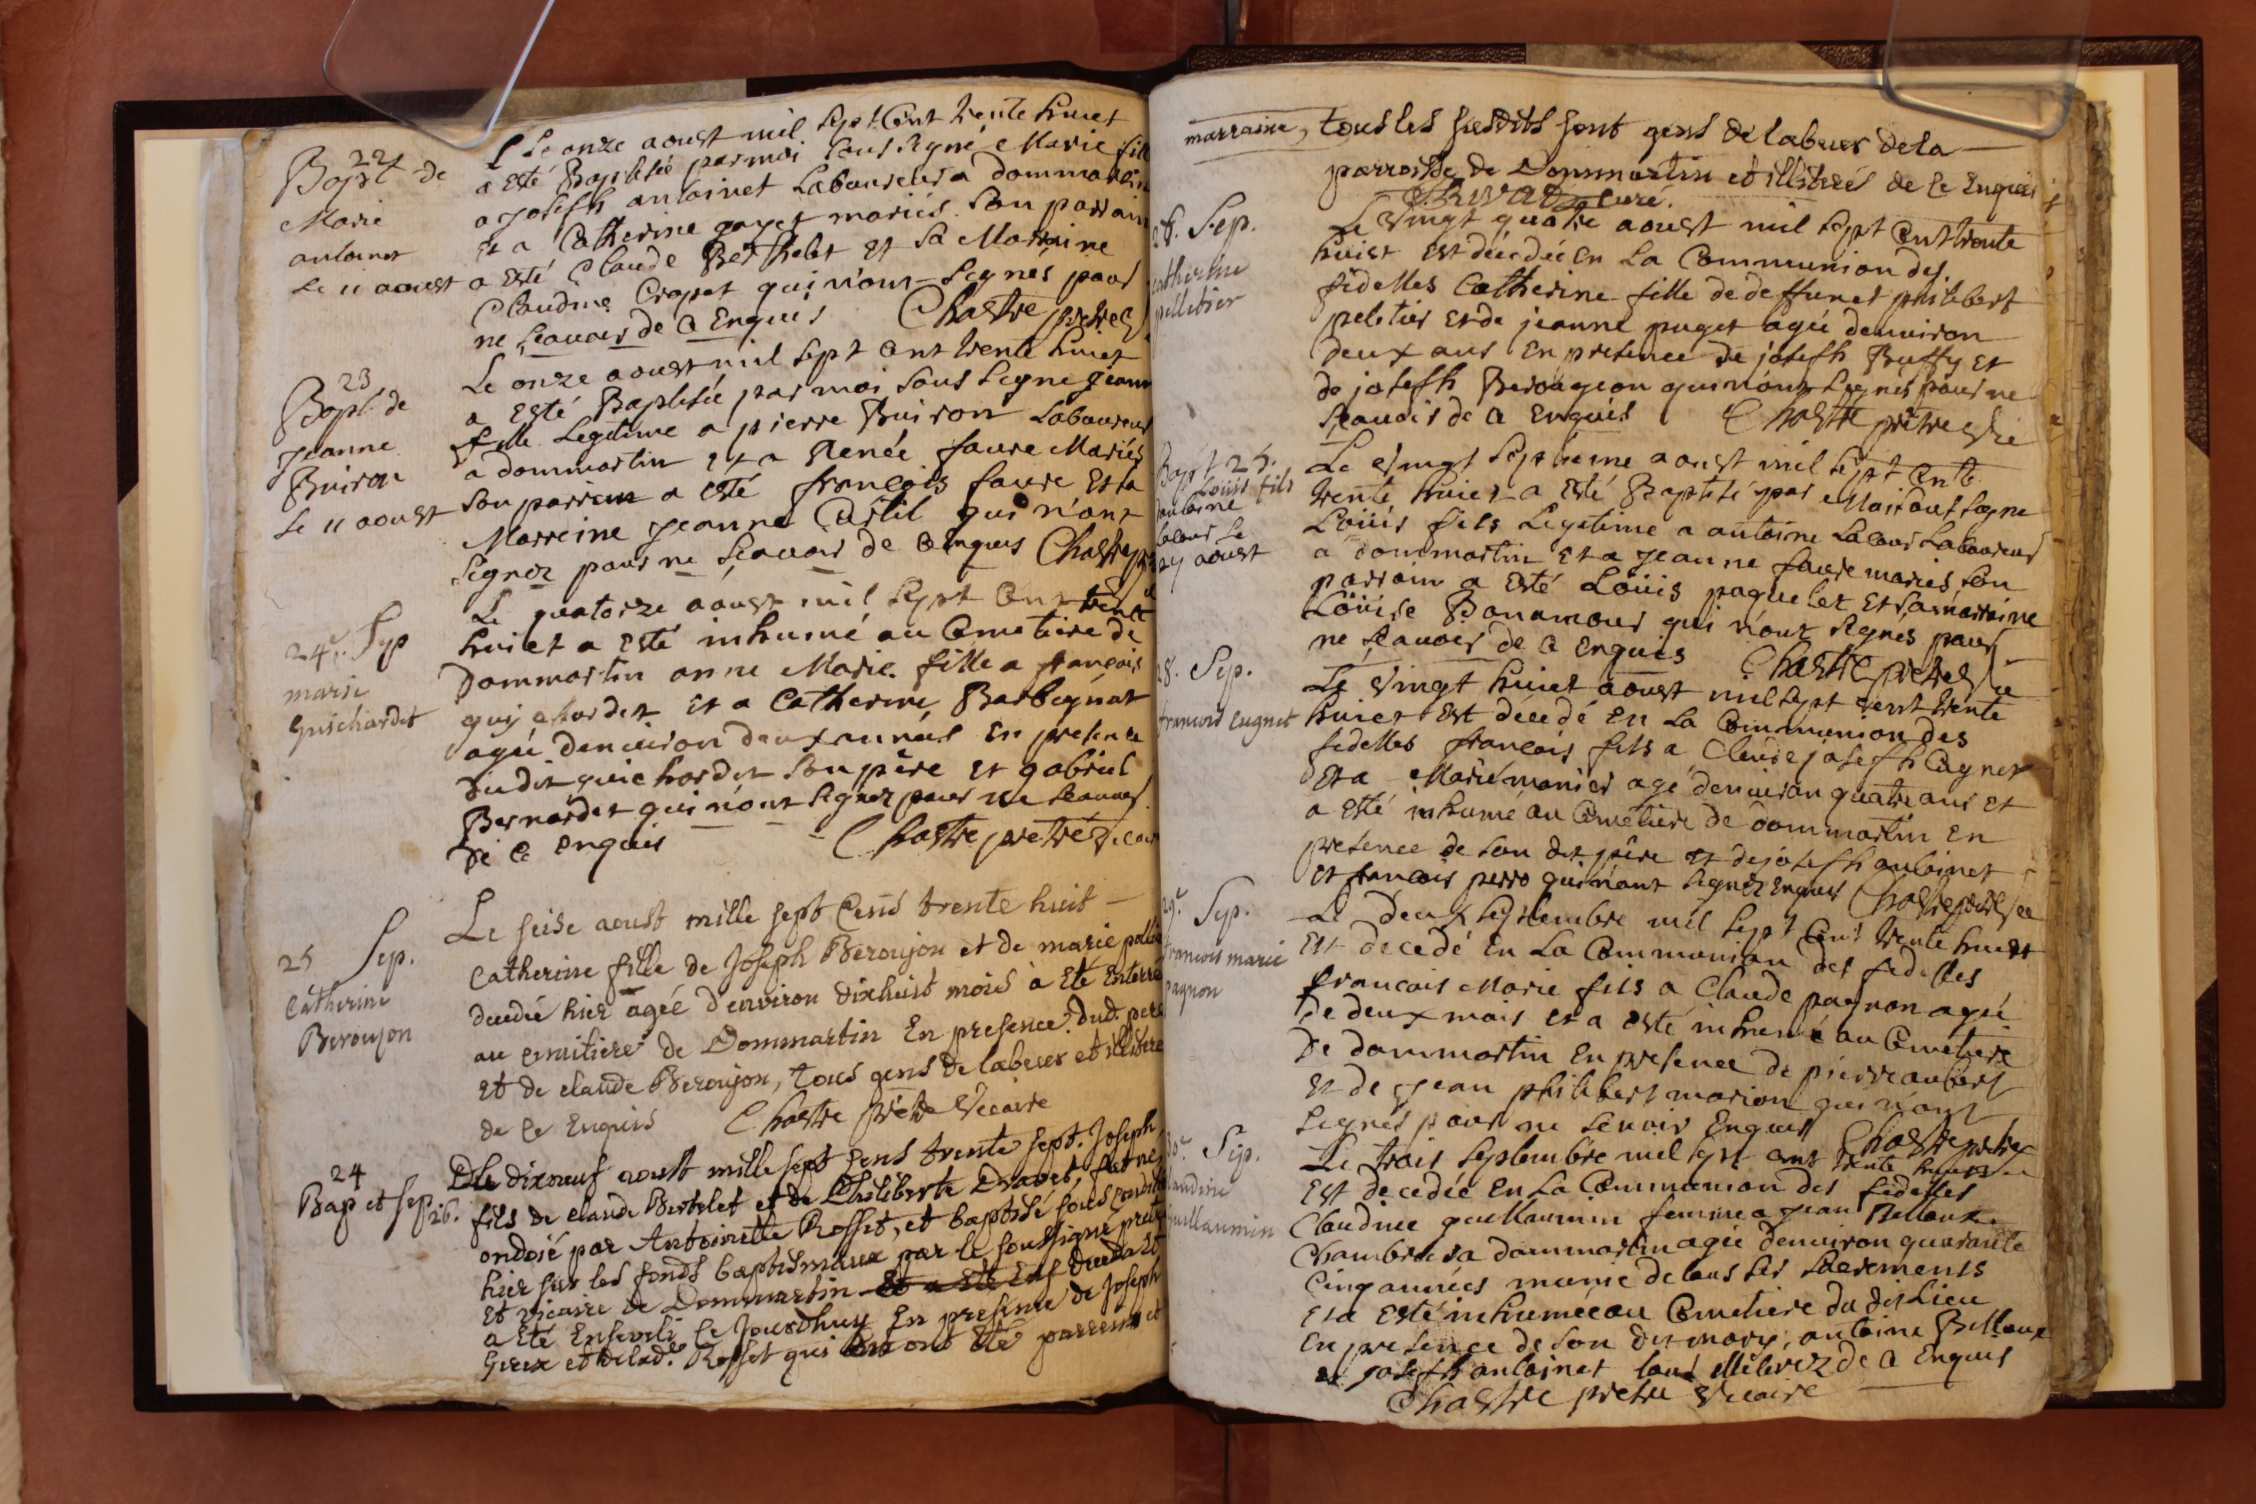 22
Bapt de
Marie
antoinet
Le 11 aoust
Le onze aoust mil sept Cent trente huiet
a esté Baptisée par moi sous signé Marie fille
a joseph antoinet Laboureur a dommartin
et a Catherine gayet mariés son parrain
a esté Claude Berthelet et sa Marraine
Claudine Cropet qui n'ont signés pour
ne scavoir de ce Enquis Chastre pretre
23
Bapt de
jeanne
Buiron
Le 11 aoust
Le onze aoust mil sept cent trente huiet
a esté Baptisée par moi sous signe jeanne
fille Legitime a pierre Buiron Laboureur
a dommartin et a Renée faure Mariés
son parrein a esté francois faure et sa
Marreine jeanne Curtil qui n'ont
signez pour ne scavoir de ce enquis Chastre
24e Sep
marie
guichardet
Le quatorze aoust mil sept cent trente
huiet a esté inhumé au Cemetiere de
Dommartin anne Marie fille a francois
guichardet et a Catherine Barbegnat
agée denuiron deux années En presence
du dit guichardet son pere et gabriel
Bernardet qui n'ont signez pour ne scauoir
de ce enquis Chastre pretre vicaire
25 Sep.
Catherine
Beroujon
Le seise aoust mille sept Cens trente huit
Catherine fille de Joseph Beroujon et de marie
decedée hier agée d'environ dixhuit mois à été enterrée
au cemitiere de Dommartin En presence dud. pere
et de claude Beroujon, tous gens de labeur et illitere
de ce Enquis Chastre prêtre Vicaire
24
Bap et sep 26.
Le dixneuf aoust mille sept sens trente sept. Joseph
fils de claude Bertelet et de Philiberte Dravet, fut né
ondoié par Antoinette Rosset, et baptisé sous condition
hier sur les fonds baptismaux par le soussigné pretre
et vicaire de Dommartin et a été
a été Enseveli ce Jourdhuy En presence de Joseph
et de lad.e Rosset qui ont été parrein et
marraine, tous les susdits sont gens de labeur de la
parroisse de Dommartin et illiterés de ce Enquis
curé.
26. Sep.
Catherine
pelletier
Le vingt quatre aoust mil sept cent trente
huiet est decedée En La Communion des
fidelles Catherine fille de deffunct philibert
peletier et de jeanne puget agée denuiron
deux ans En presence de joseph Buffy et
de joseph Berougeon qui n'ont signés pour ne
scauoir de ce enquis Chastre prêtre
Bapt 25.
Loüis fils
antoine
Lacour Le
27 aoust
Le vingt septieme aoust mil sept cent
trente huiet a esté Baptisé par Moi sous signe
Loüis fils Legitime a antoine Lacour Laboureur
a dommartin et a jeanne faure mariés son
parrain a esté Loüis paquelet et sa marraine
Loüise Bonamour qui n'ont signés pour
ne scauoir de ce enquis Chastre pretre
28. Sep.
francois cugnet
Le vingt huiet aoust mil sept cent trente
huiet est decedé En La Communion des
fidelles francois fils a Claude joseph Cugnet
et a Marie monier agé denuiron quatre ans et
a esté inhumé au Cemetiere de dommartin en
presence de son dit père et de joseph antoinet
et francois perro qui n'ont signez enquis Chastre pretre
29e. Sep.
francois marie
pagnon
Le deux septembre mil sept Cent trente huiet
est decedé En La Communion des fidelles
francois Marie fils a Claude pagnon agée
de deux mois et a esté inhumé au Cemetiere
de dommartin En presence de pierre aubert
et de jean philibert marion qui n'ont
signés pour ne scavoir Enquis Chastre pretre
30e. Sep.
Claudine
guillaumin
Le trois septembre mil sept cent trente huiet
est decedée En La Communion des fidelles
Claudine guillaumin femme a jean Belloux
a dommartin agée denuiron quarante
Cinq années munie de tous ses sacrements
et a esté inhumée au Cemetiere du dit Lieu
En presence de son dit mary, antoine Belloux
et joseph antoinet tous illiterez de ce Enquis
Chastre pretre Vicaire